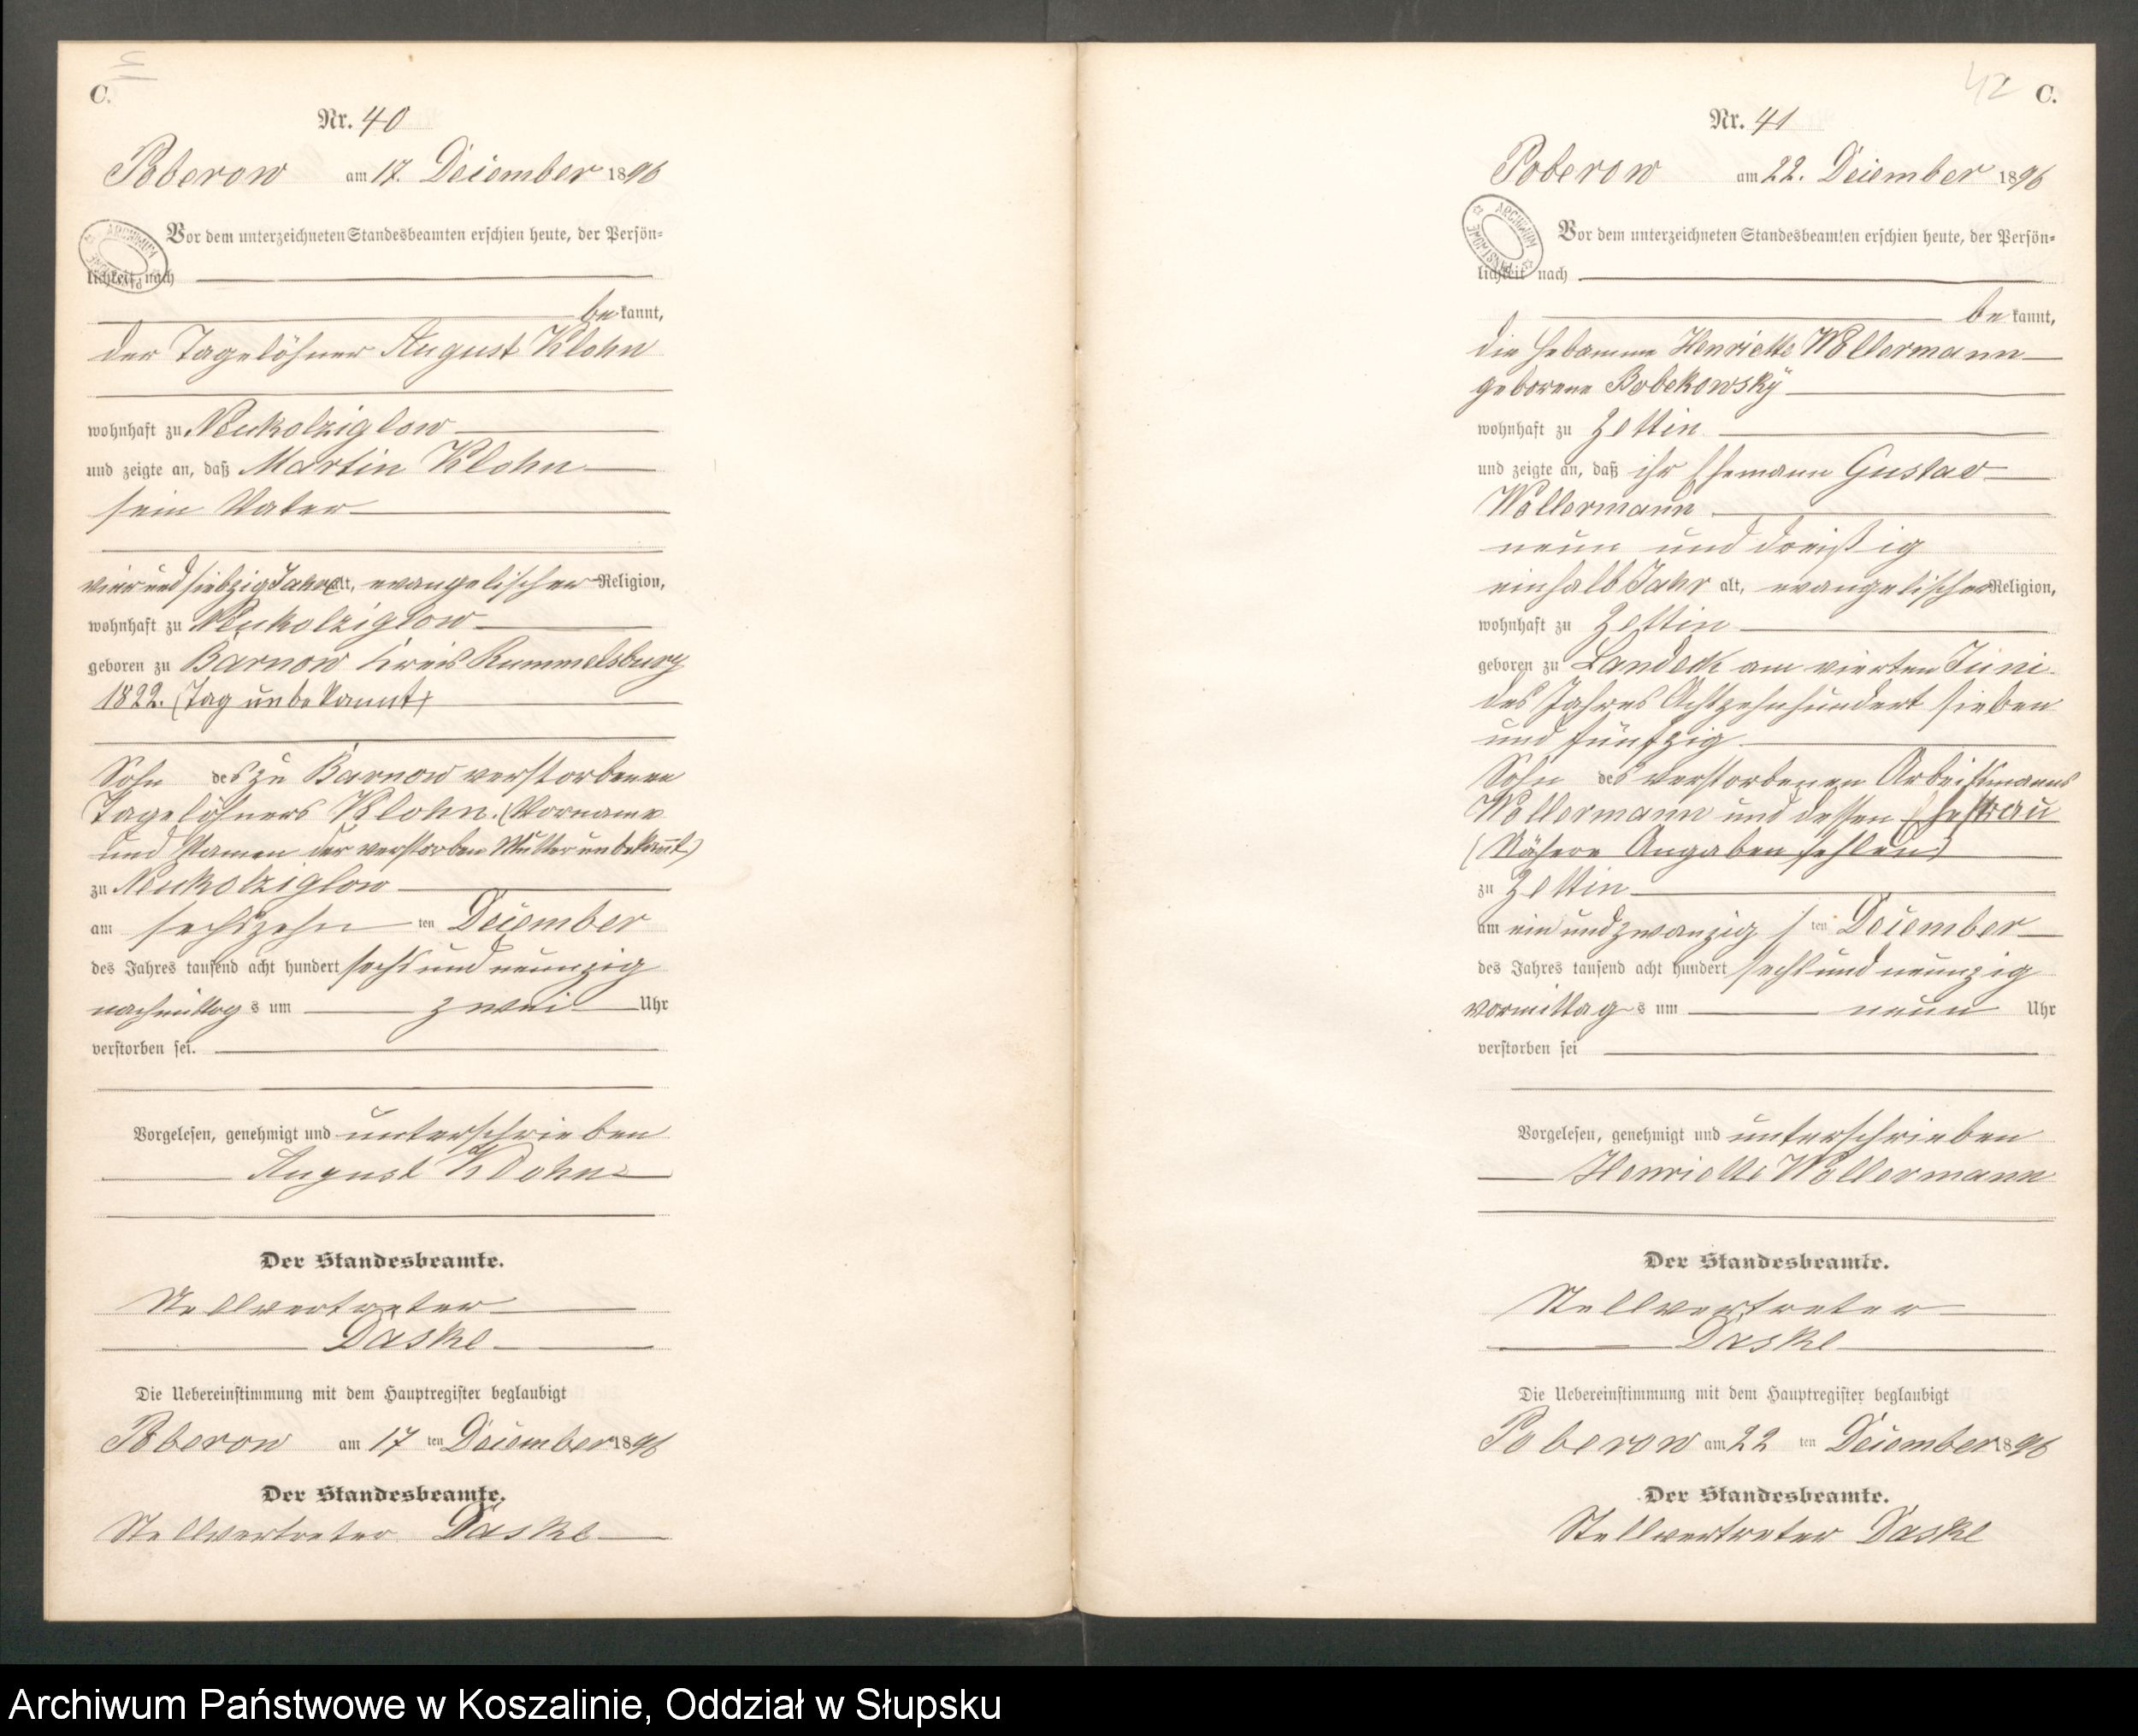 C.
Nr. 40
Poberow am 17. December 1896
Vor dem unterzeichneten Standesbeamten erschien heute, der Persön-
lichkeit nach
be kannt,
der Tagelöhner August Klohn
wohnhaft zu Neukolziglow
und zeigte an, daß Martin Klohn
sein Vater
vier und siebzig Jahre alt, evangelischer Religion,
wohnhaft zu Neukolziglow
geboren zu Barnow Kreis Rummelsburg
1822. (Tag unbekannt)
Sohn des zu Barnow verstorbenen
Tagelöhners Klohn. (Vorname
und Namen der verstorben Mutter unbekannt)
zu Neukolziglow
am sechszehn ten December
des Jahres tausend acht hundert sechs und neunzig
nachmittag s um zwei Uhr
verstorben sei.
Vorgelesen, genehmigt und unterschrieben
August Klohn
Der Standesbeamte.
Stellvertreter
Daske
Die Uebereinstimmung mit dem Hauptregister beglaubigt
Poberow am 17 ten December 1896
Der Standesbeamte.
Stellvertreter Daske
42 C.
Nr. 41
Poberow am 22. December 1896
ARCHIWUM PAŃSTWOWE
Vor dem unterzeichneten Standesbeamten erschien heute, der Persön-
lichkeit nach
be kannt,
die Hebamme Henriette Wollermann
geborene Bobekowsky
wohnhaft zu Zettin
und zeigte an, daß ihr Ehemann Gustav
Wollermann
neun und dreißig
einhalb Jahr alt, evangelischer Religion,
wohnhaft zu Zettin
geboren zu Landeck am vierten Juni
des Jahres Achtzehnhundert sieben
und fünfzig
Sohn des verstorbenen Arbeitsmanns
Wollermann und dessen Ehefrau
(Nähere Angaben fehlen)
zu Zettin
am ein und zwanzig s ten December
des Jahres tausend acht hundert sechs und neunzig
vormittag s um neun Uhr
verstorben sei
Vorgelesen, genehmigt und unterschrieben
Henriette Wollermann
Der Standesbeamte.
Stellvertreter
Daske
Die Uebereinstimmung mit dem Hauptregister beglaubigt
Poberow am 22 ten December 1896
Der Standesbeamte.
Stellvertreter Daske
Archiwum Państwowe w Koszalinie, Oddział w Słupsku